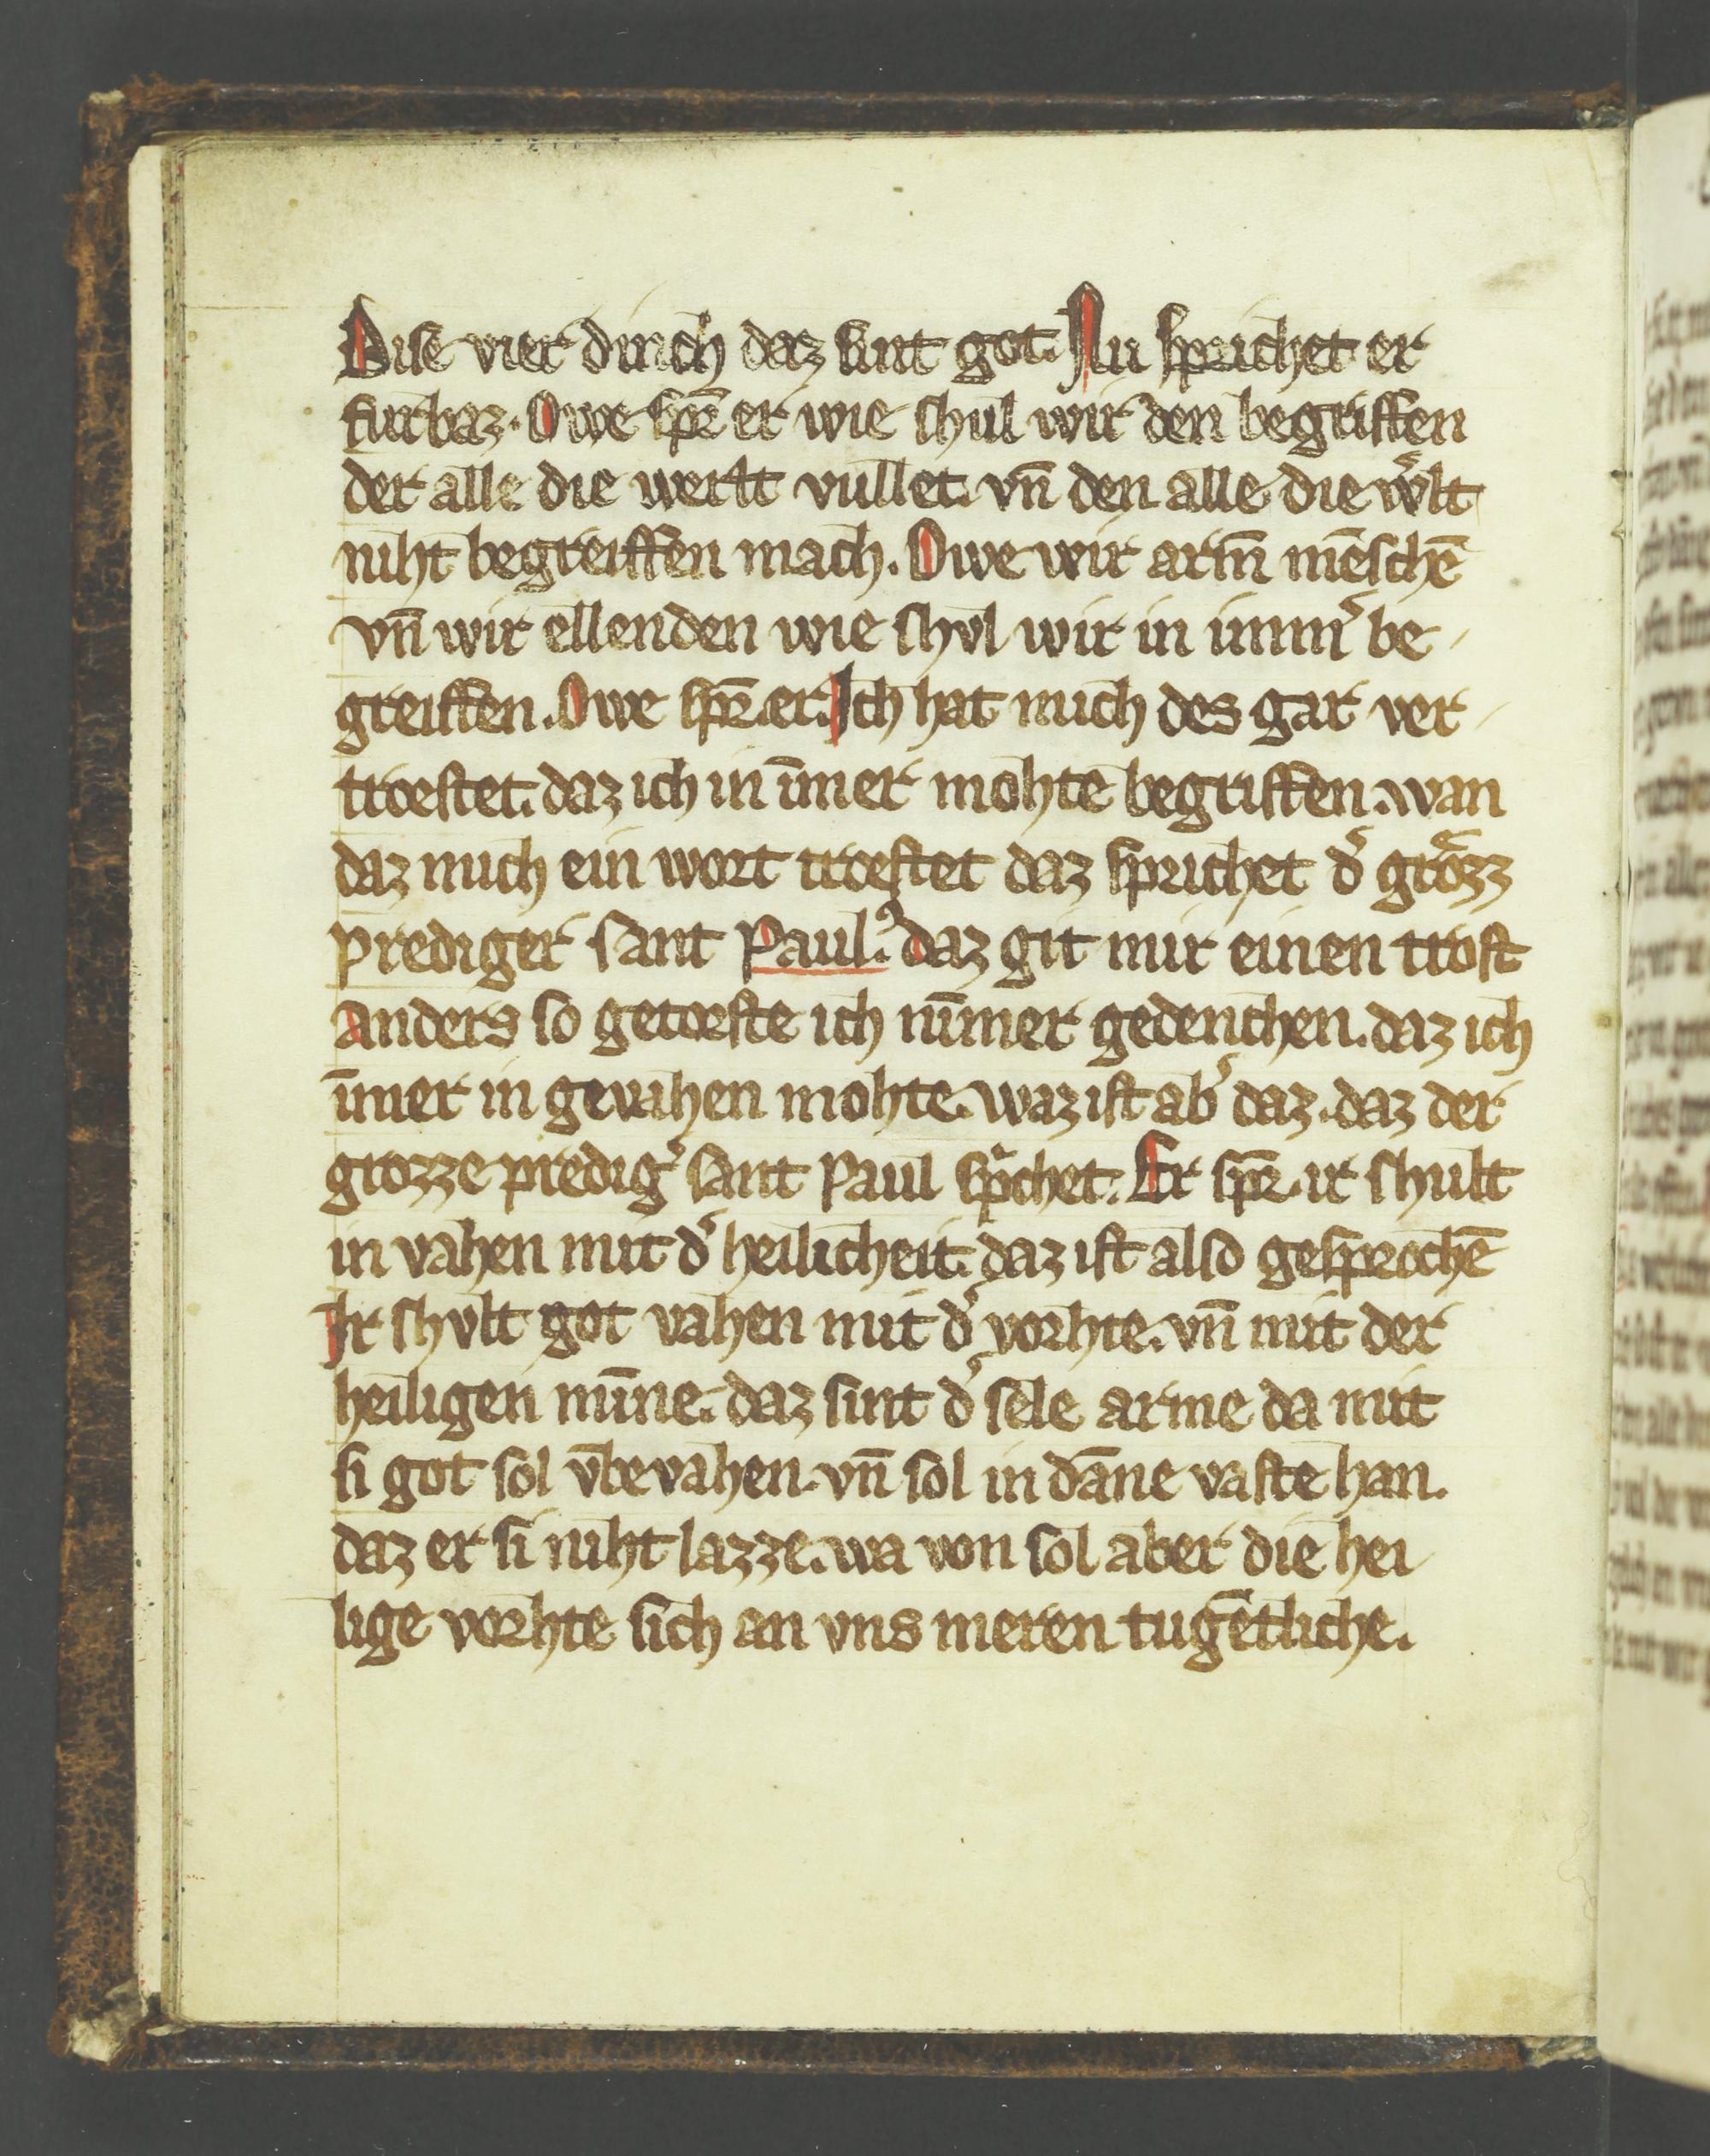 Dise vier dinch daz sint got. Nu sprichet er
furbaz. Owe spͬ er wie shul wir den begriffen
der alle die werlt vullet. vn̄ den alle die w͛lt
niht begreiffen mach. Owe wir arm̄ mēschē
vn̄ wir ellenden wie shvl wir in imm͛ be-
greiffen. Owe spͬ. er. Ich hat mich des gar ver-
troestet. daz ich in īmer mohte begriffen. wan
daz mich ein wort troestet daz sprichet d͛ grozz
prediger sant Paulꝰ. daz git mir einen trost
Anders so getoerste ich nīmer gedenchen. daz ich
īmer in gevahen mohte. waz ist ab͛ daz. daz der
grozze predig͛ sant Paul sp̍chet. Er spͬ. ir shult
in vahen mit d͛ heilicheit. daz ist also gesprochē
Ir shvlt got vahen mit d͛ vorhte. vn̄ mit der
heiligen mīne. daz sint d͛ sele arme da mit
si got sol vm̄bevahen. vn̄ sol in dāne vaste han.
daz er si niht lazze. wa von sol aber die hei-
lige vorhte sich an vns meren tugētliche.